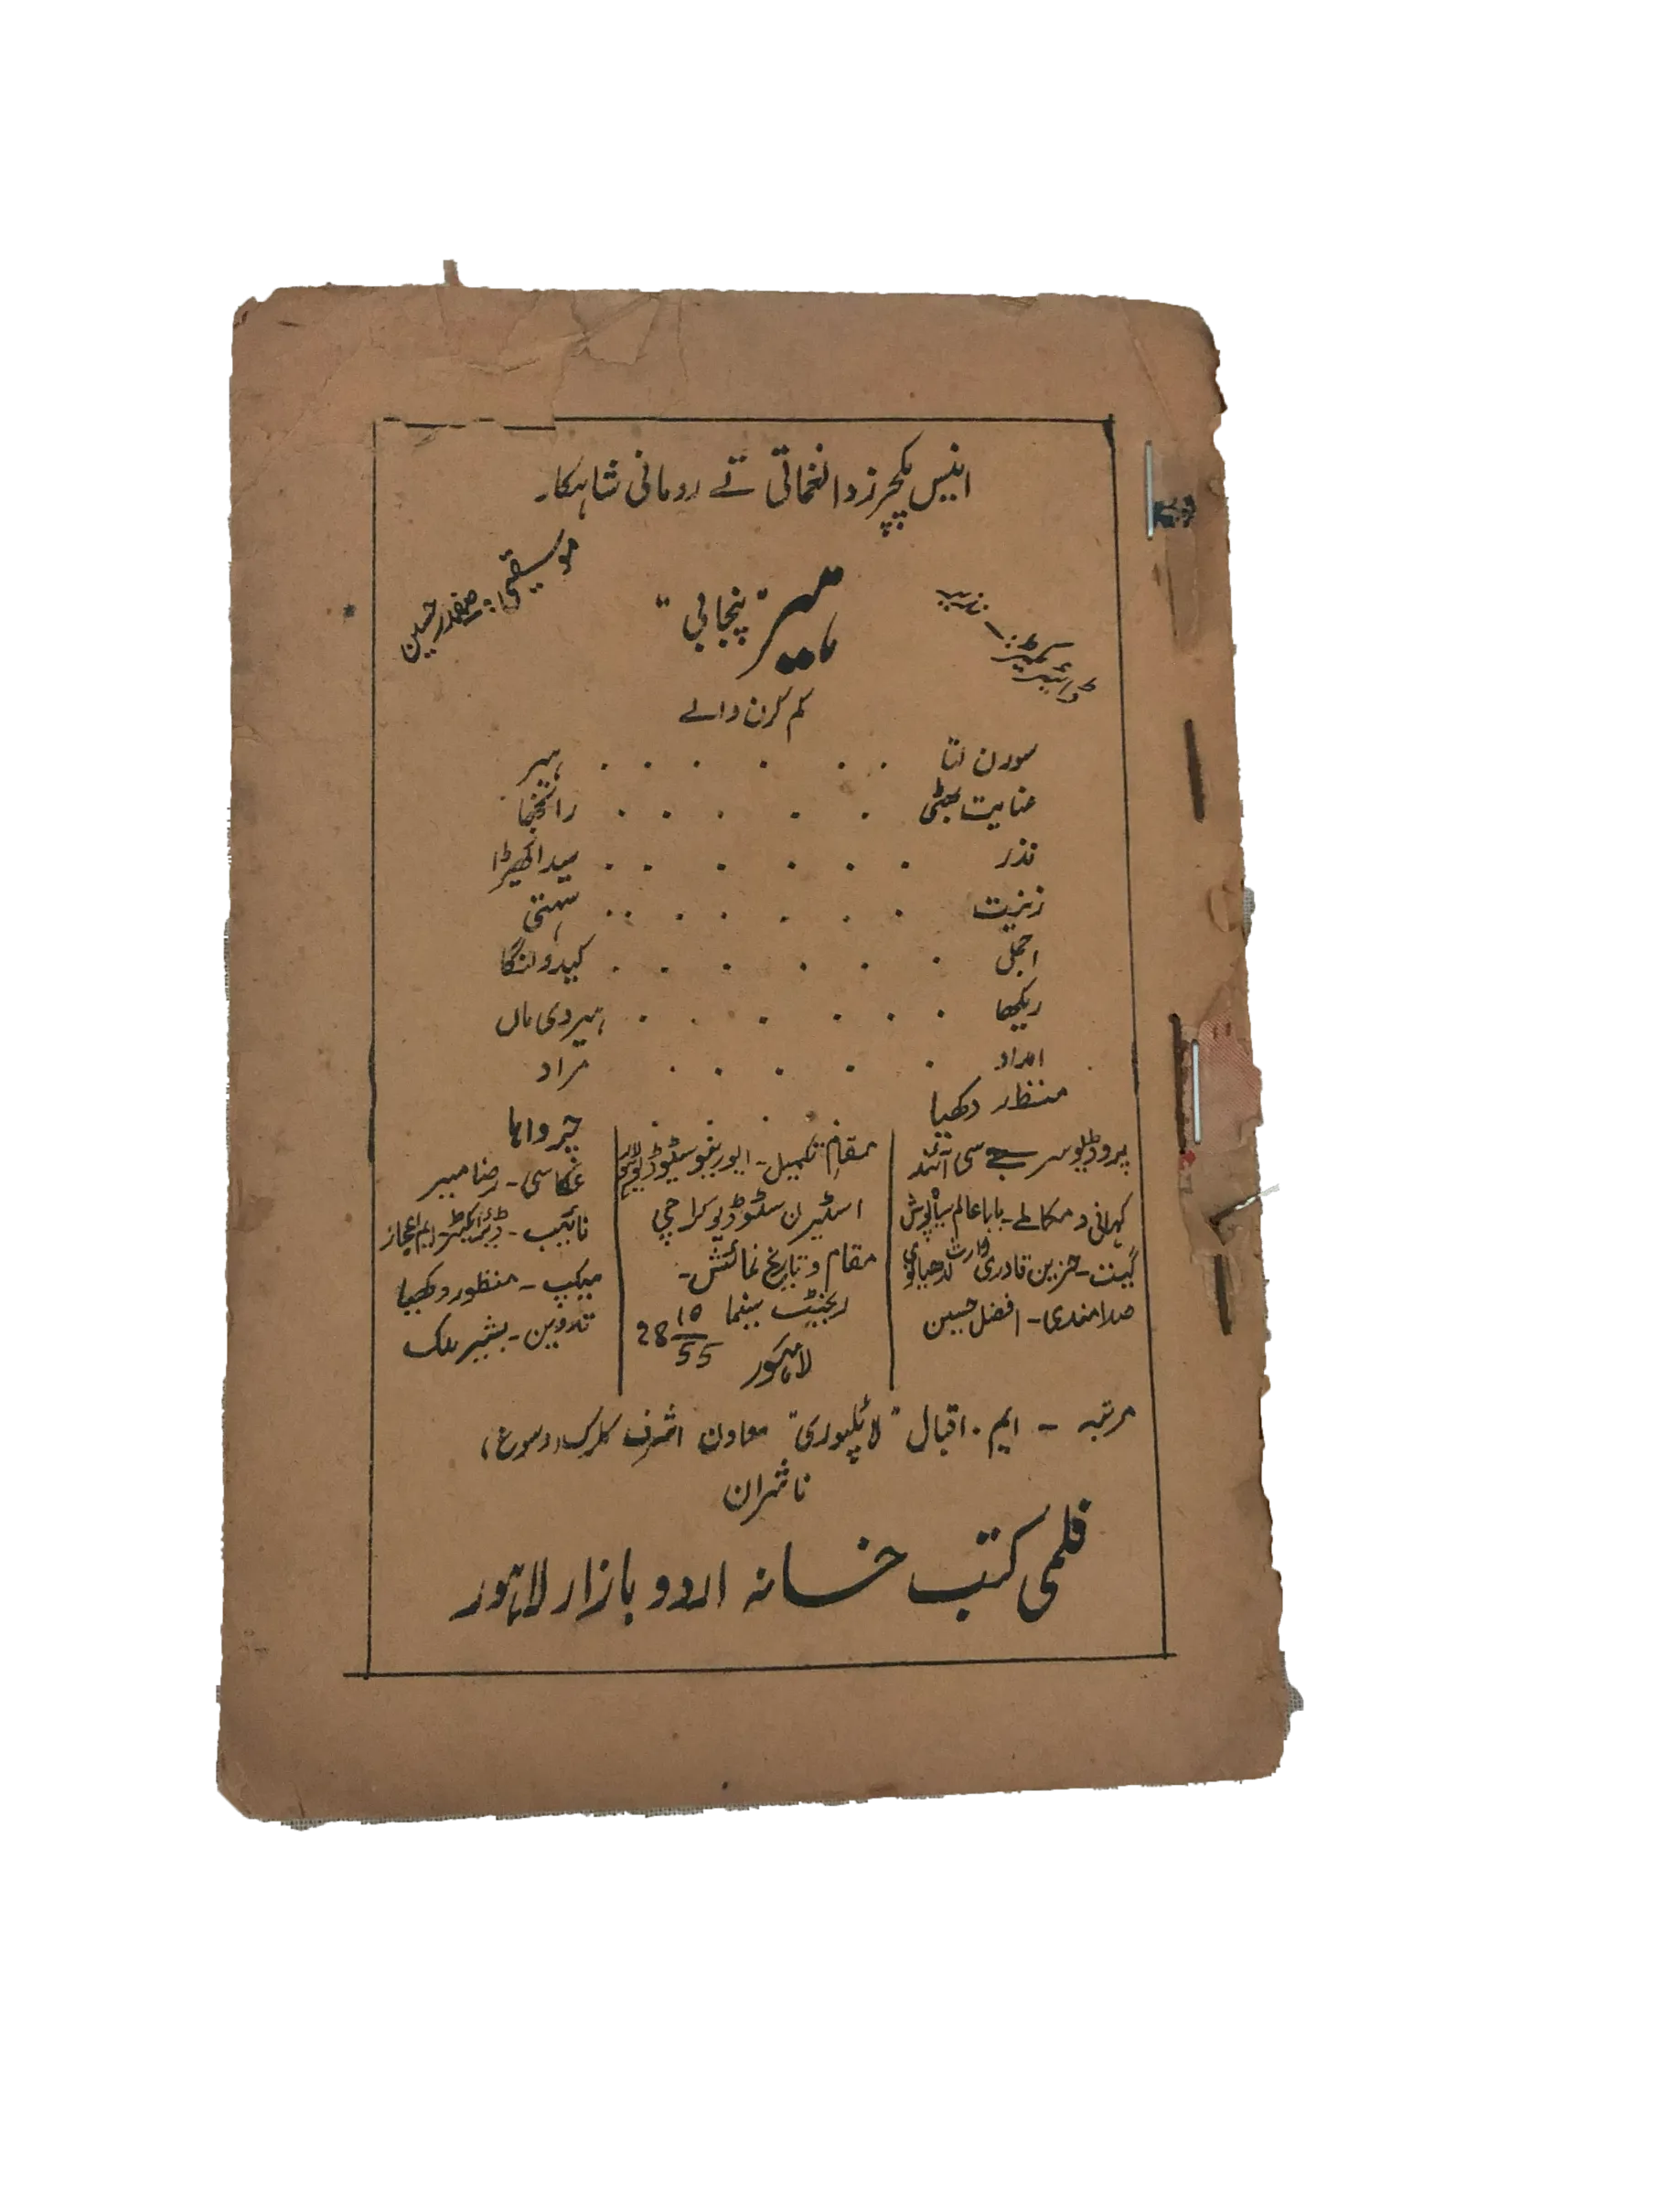 انیس پکچرز دا نغماتی تے رومانی شاہکار
موسیقی: صفدر حسین
ہیر "پنجابی"
ڈائریکٹر - نذیر
کم کرن والے
سورن لتا . . . . . . ہیر
عنایت بھٹی . . . . . رانجھا
نذر . . . . . . سیدا کھیڑا
زینت . . . . . . . سہتی
اجمل . . . . . . کیدو لنگا
ریکھا . . . . . . ہیر دی ماں
امداد . . . . . مراد
منظور دکھیا . . . چرواہا
پروڈیوسر جے سی آنند
کہانی و مکالمے - بابا عالم سیاہ پوش
گیت - حزین قادری وارث لدھیانوی
صدا بندی - افضل حسین
مقام تکمیل - ایورنیو سٹوڈیو لاہور
اسٹرن سٹوڈیو کراچی
مقام و تاریخ نمائش -
ریجنٹ سینما 28 10/55
لاہور
عکاسی - رضا میر
نائیب - ڈئرایکٹر - ایم اعجاز
میکپ - منظور دکھیا
تدوین - بشیر ملک
مرتبہ - ایم . اقبال "لائلپوری" معاون اشرف کلرک (دسوعہ)
ناشران
فلمی کتب خانہ اردو بازار لاہور